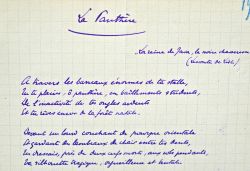 La Panthère
La reine de Java, la noire chasseresse
(Leconte de Lisle)
A travers les barreaux énormes de ta stalle,
Tu te plains, ô panthère, en bâillements stridents,
De l'inactivité de tes ongles ardents
Et tu rêves encor de la forêt natale.
Devant un lourd couchant de pourpre orientale
Regardant les lambeaux de chair entre tes dents,
Tu dressais, près de deux
Ta silhouette tragique, orgueilleuse et brutale.